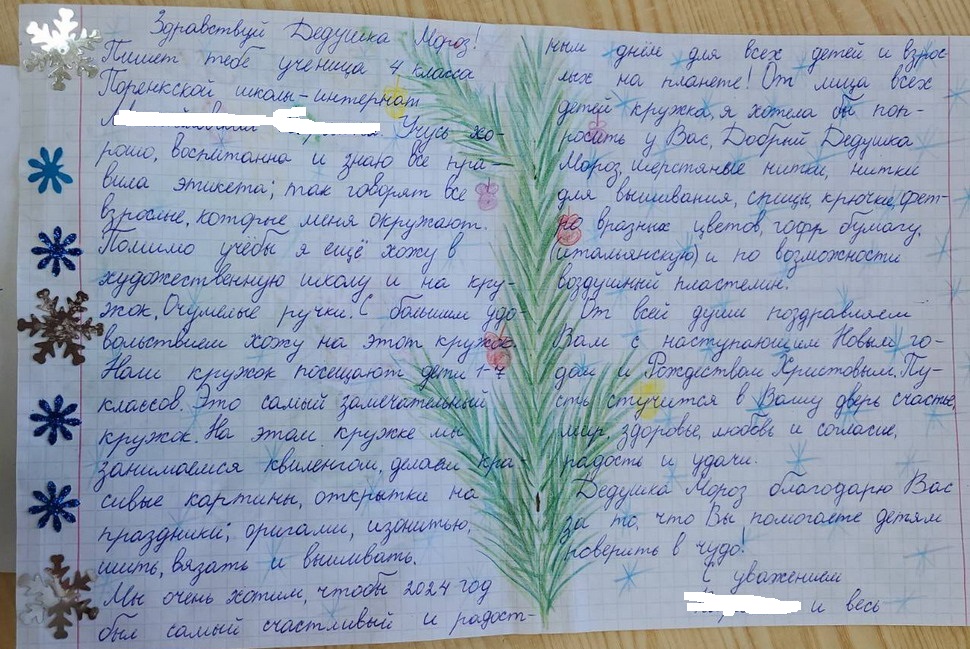 Здравствуй Дедушка Мороз!
Пишет тебе ученица 4 класса
Горенкской школы-интернат
Учусь хо-
рошо, воспитанна и знаю все пра-
вила этикета; так говорят все
взрослые, которые меня окружают.
Помимо учебы я ещё хожу в
художественную школу и на кру-
жок „Очумелые ручки". С большим удо-
вольствием хожу на этот кружок.
Наш кружок посещают дети 1-7
классов. Это самый замечательный
кружок. На этом кружке мы
занимаемся квиленгом, делаем кра-
сивые картины, открытки на
праздники; оригами, изонитью,
шить, вязать и вышивать.
Мы очень хотим, чтобы 2024 год
был самый счастливый и радост-
ным днём для всех детей и взрос-
лых на планете! От лица всех
детей кружка, я хотела бы поп-
росить у Вас, Добрый Дедушка
Мороз, шерстяные нитки, нитки
для вышивания, спицы, крючки, фет-
ра вразных цветов, гофр бумагу,
(итальянскую) и по возможности
воздушный пластелин.
От всей души поздравляем
Вам с наступающием Новым го-
дом и Рождеством Христовым. Пу-
сть стучится в Вашу дверь счастье,
мир, здоровье, любовь и согласие,
радость и удачи.
Дедушка Мороз благодарю Вас
за то, что Вы помогаете детям
поверить в чудо!
С уважением
и весь